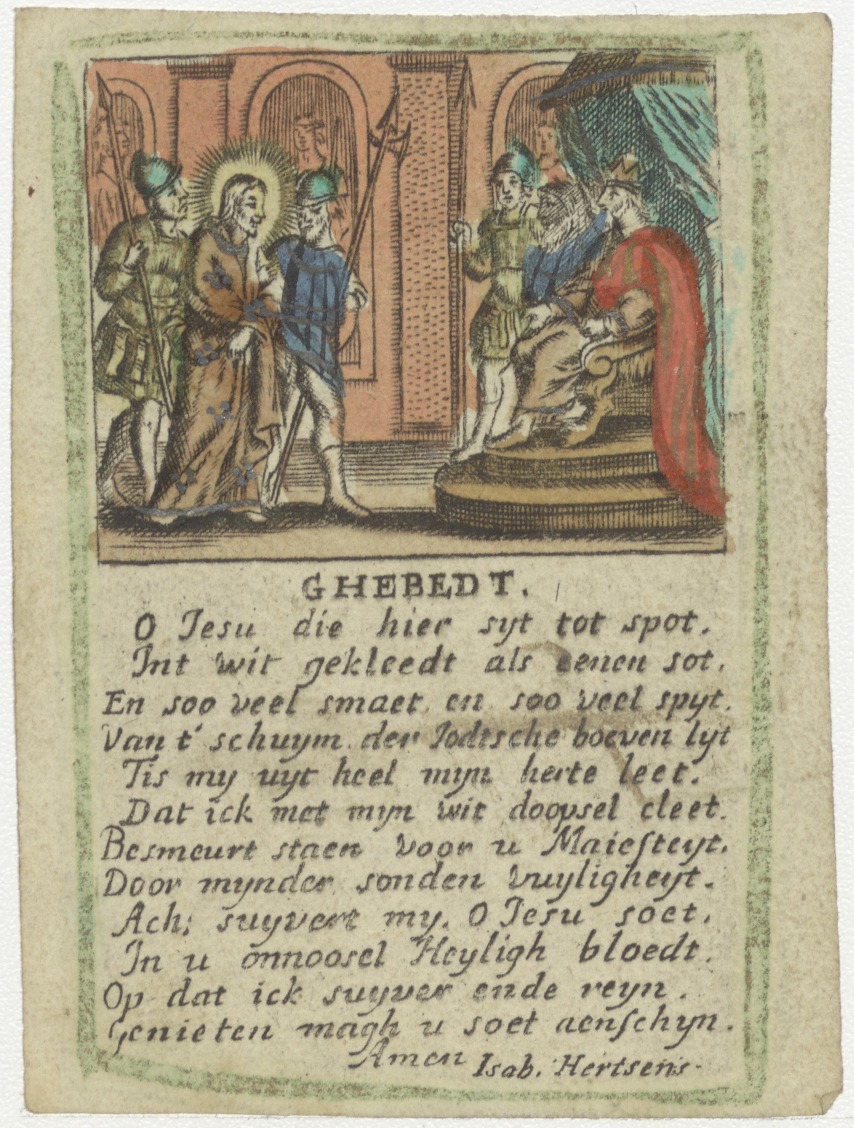 GHEBEDT.
O Jesu die hier syt tot spot.
Int wit gekleedt als eenen sot.
En soo veel smaet en soo veel spyt.
Van t' schuym der Jodtsche boeven lyt
Tis my uyt heel myn herte leet.
Dat ick met myn wit doopsel cleet.
Besmeurt staen voor u Maiesteyt.
Door mynder sonden vuyligheyt.
Ach; suyvert my. O Jesu soet.
In u onnoosel Heyligh bloedt.
Op dat ick suyver ende reyn.
Genieten magh u soet aenschyn.
Amen Isab. Hertsens.